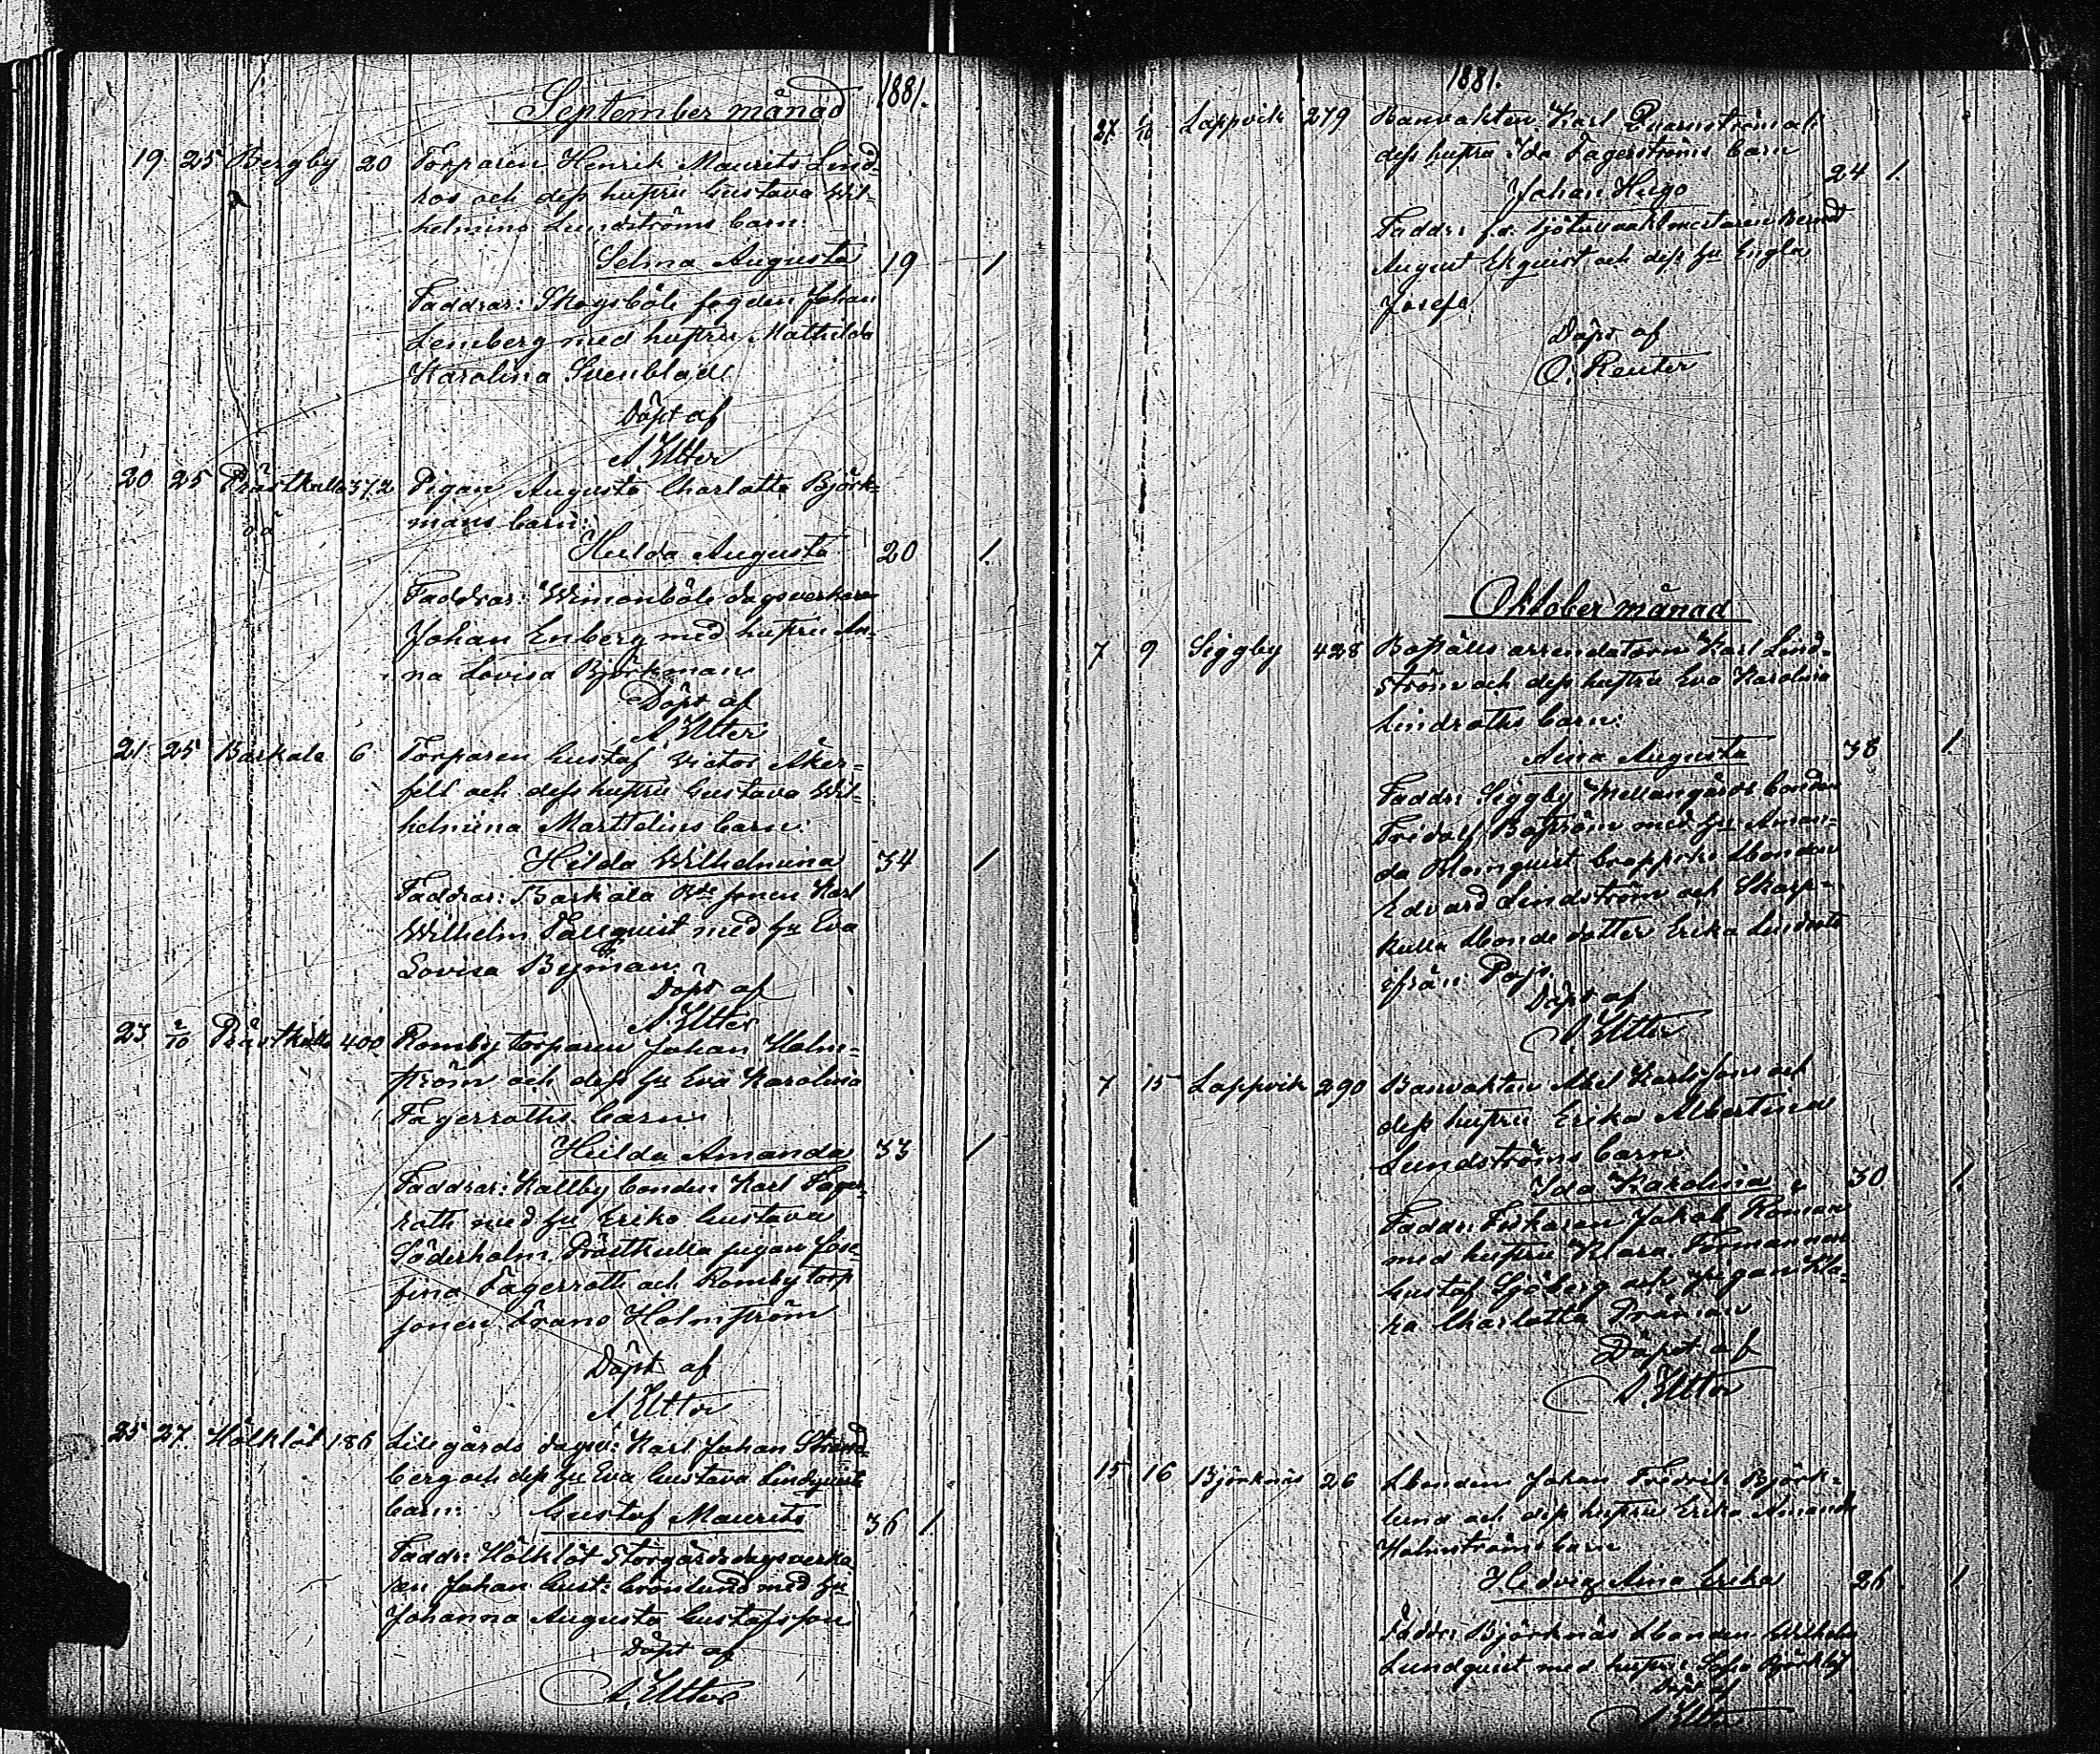 1881.
September månad
19 25 Bergby 20 Torparen Henrik Maurits Lind-
ros och dess hustru Gustava Wil-
helmina Lundströms barn:
Selma Augusta 19 1
Faddrar: Skogsböle fogden Johan
Lemberg med hustru Mathilda
Karolina Svenblad
Döpt af
A Utter
20 25 Prästkulla 372 Pigan Augusta Charlotta Björk-
mans barn:
oä
Hulda Augusta 20 1.
Faddrar: Wimonböle dagsverkaren
Johan Enberg med hustru An-
na Lovisa Björkman
Döpt af
A Utter
21 25 Baskala 6 Torparen Gustaf Victor Åker-
felt och dess hustru Gustava Wil-
helmina Marttelins barn:
Hilda Wilhelmina 34 1
Faddrar: Baskala sonen Karl
Wilhelm Tallquist med hu Eva
Lovisa Byman
Döpt af
A. Utter
23 2/10 Prästkulla 400 Romby torparen Johan Holm-
ström och dess hu Eva Karolina
Fagerroths barn
Hulda Amanda 33 1
Faddrar: Kallby bonden Karl Fager-
roth med hu Erika Gustava
Söderholm, Prästkulla pigan Jose-
fina Fagerroth och Romby torp
sonen Frans Holmström
Döpt af
A Utter
25 27. Hölklöt 186 Lillegårds dagsv: Karl Johan Strand-
berg och dess hu Eva Gustava Lindquists
barn: Gustaf Maurits 36 1
Faddr: Hölklöt Storgårds dagsverka-
ren Johan Gust: Grönlund med hu
Johanna Augusta Gustafsson
Döpt af
A. Utter
1881.
27 /10 Lappvik 279 Banvakten Karl Qvarnström och
dess hustru Ida Fagerströms barn
Johan Hugo 24 1.
Faddr: f.d. Bernd
August Ekquist och dess hu Engla
Josefa
Döpt af
O. Reuter
Oktober månad
7 9 Siggby 428 Boställs arrendatorn Karl Lind-
ström och dess hustru Eva Karolina
Lindroths barn:
Aina Augusta 38 1.
Faddr: Siggby Mellangårds bonden
Fridolf Boström med hu Aman-
da Blomquist bonden
Edvard Lindström och Skarp-
kulla bonde dotter Erika Lindroth
ifrån Pojo.
Döpt af
A. Utter
7 15 Lappvik 290 Banvakten Abel Karlssons och
dess hustru Erika Albertina
Lundströms barn
Ida Karolina 30 1.
Faddr: Fiskaren Jakob Roman
med hustru Klara. Formannen
Gustaf Sjöberg och pigan
Charlotta
Döpt af
A. Utter
15 16 Björknäs 26 Bonden Johan Fredrik Björk-
lund och dess hustru Erika Amanda
Holmströms barn
Hedvig Aina Erika 26 1.
Faddr: Björknäs bonden Wilhelm
Lundquist med hustru Sofia
Döpt af
A. Utter